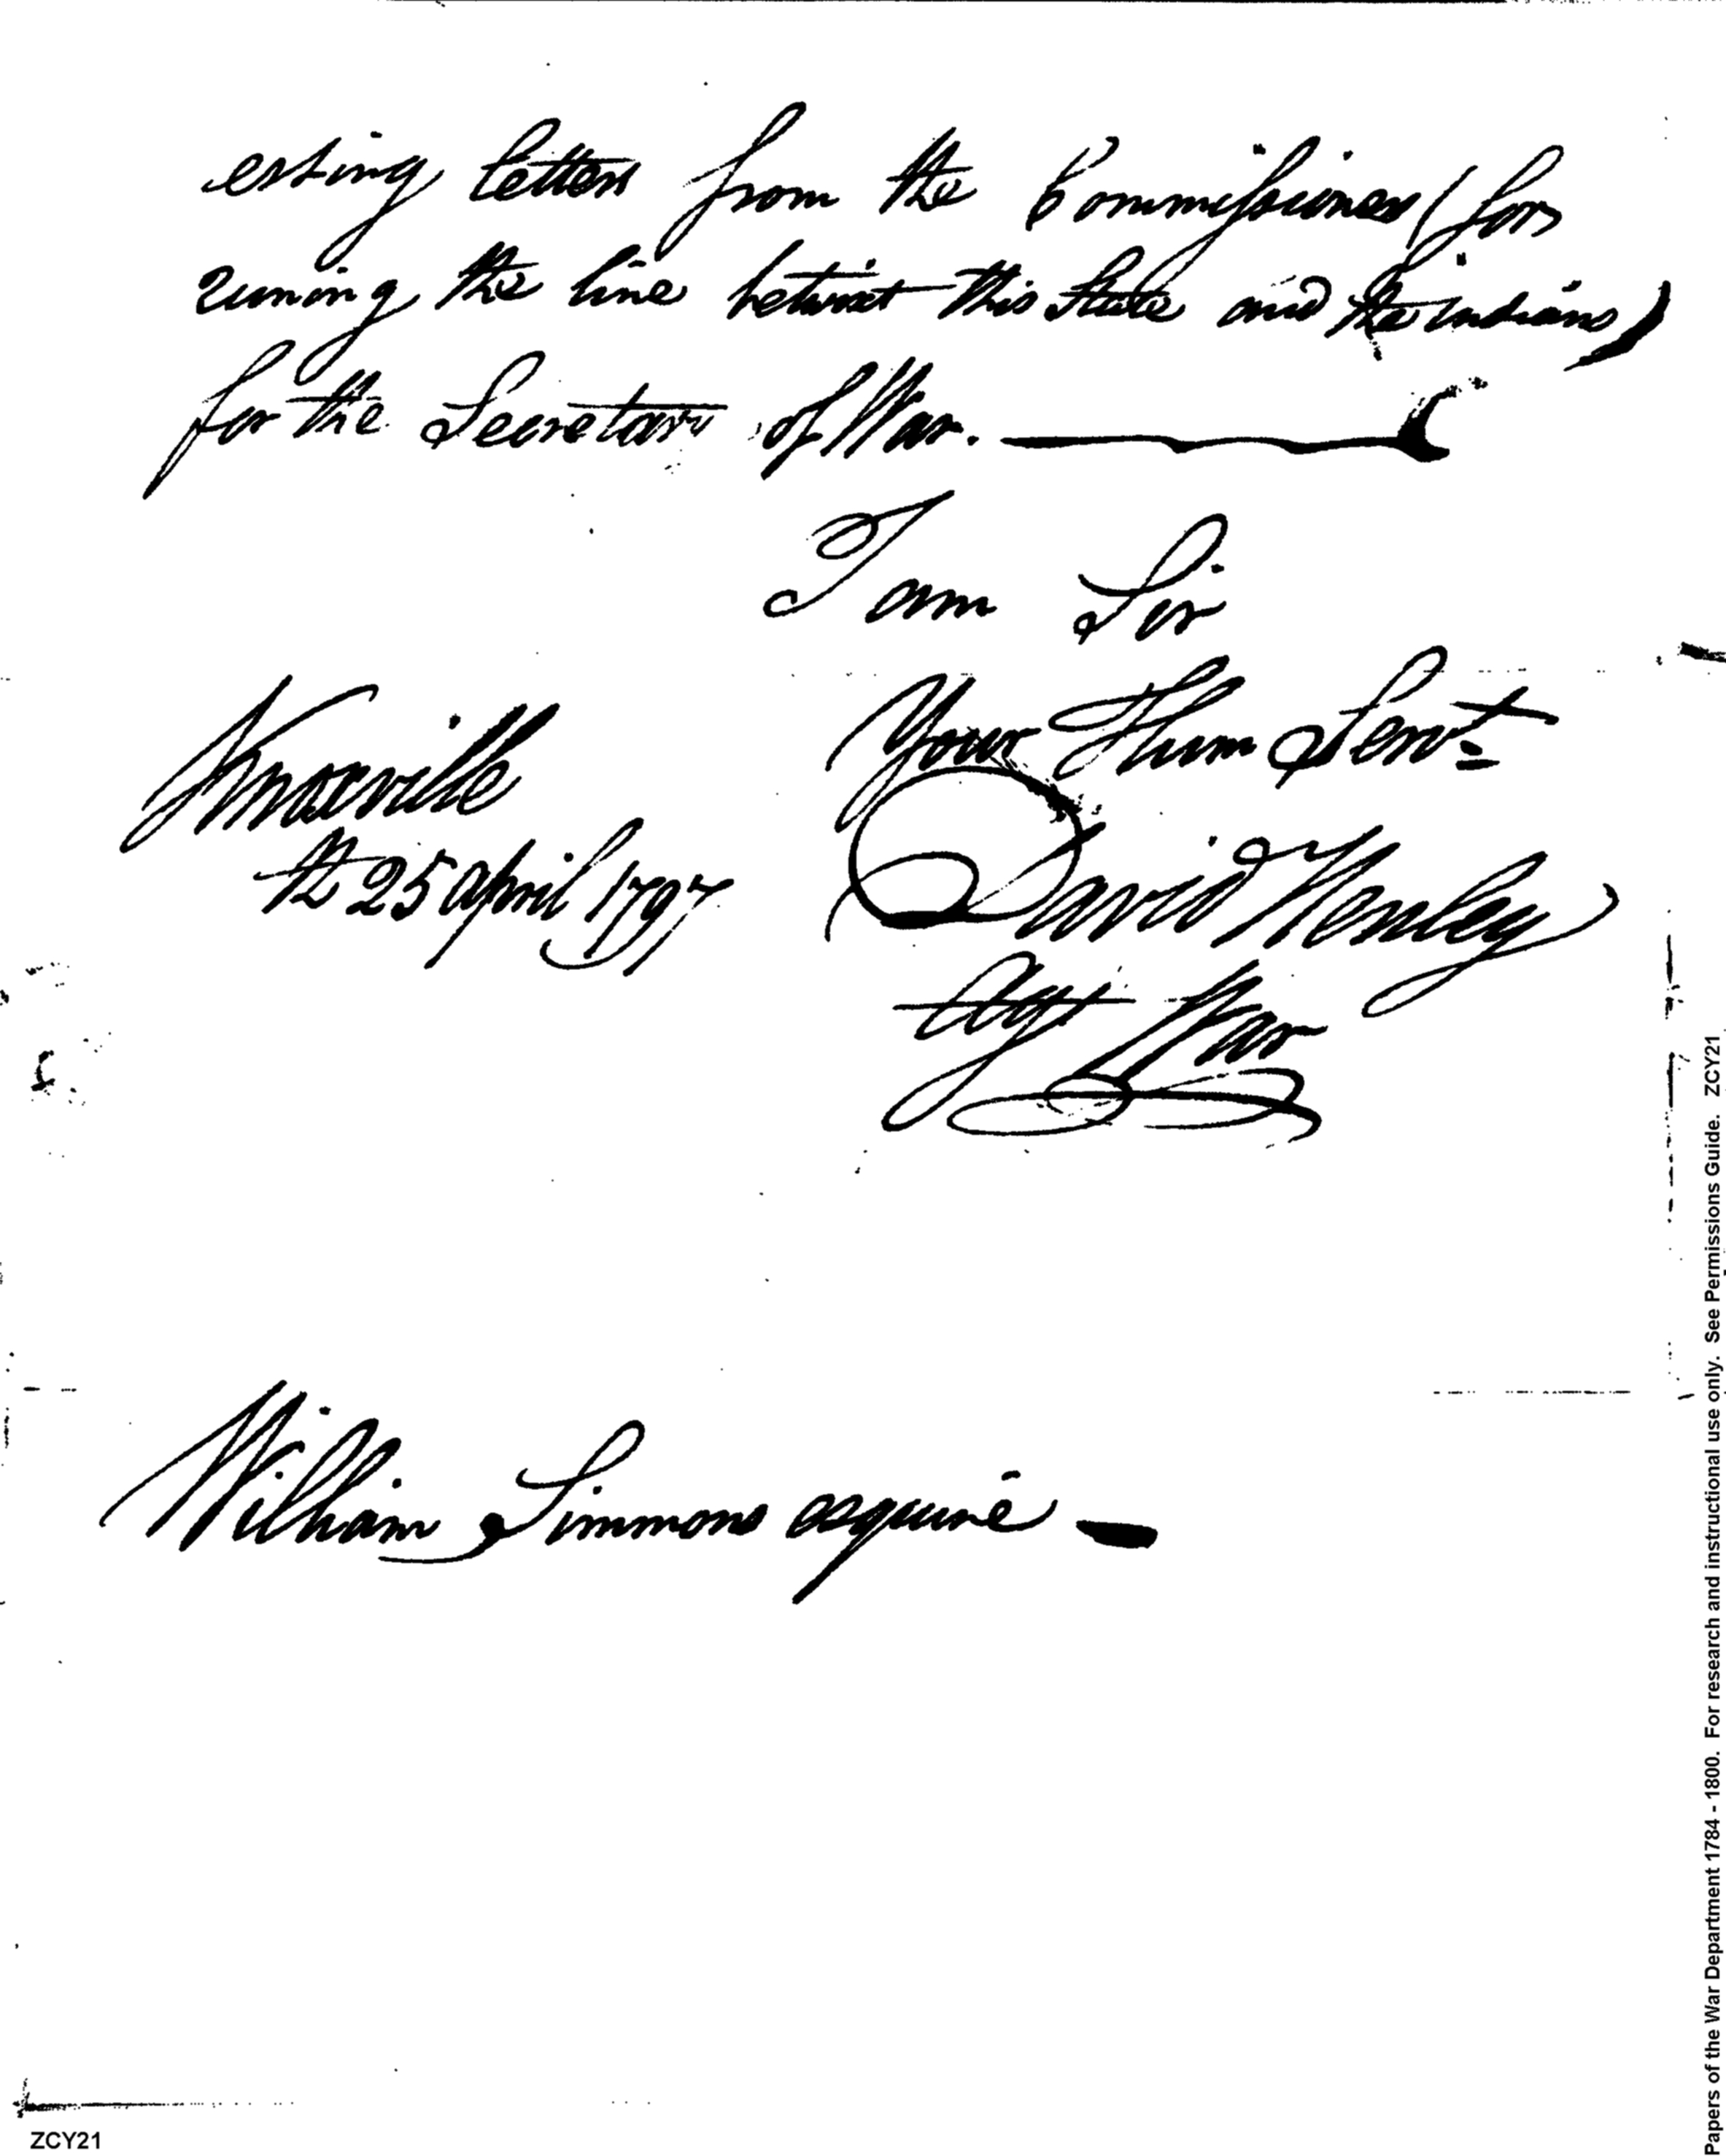 esting letters from the Commissioners (for
runing the line betwixt this State and the indians)
for the Secretary of War.
I am Sir
Your Hum Servt
Knoxville
the 25 April 1797
David Henley
Agt War
William Simmons esquire
ZCY21
Papers of the War Department 1784 - 1800. For research and instructional use only. See Permissions Guide. ZCY21